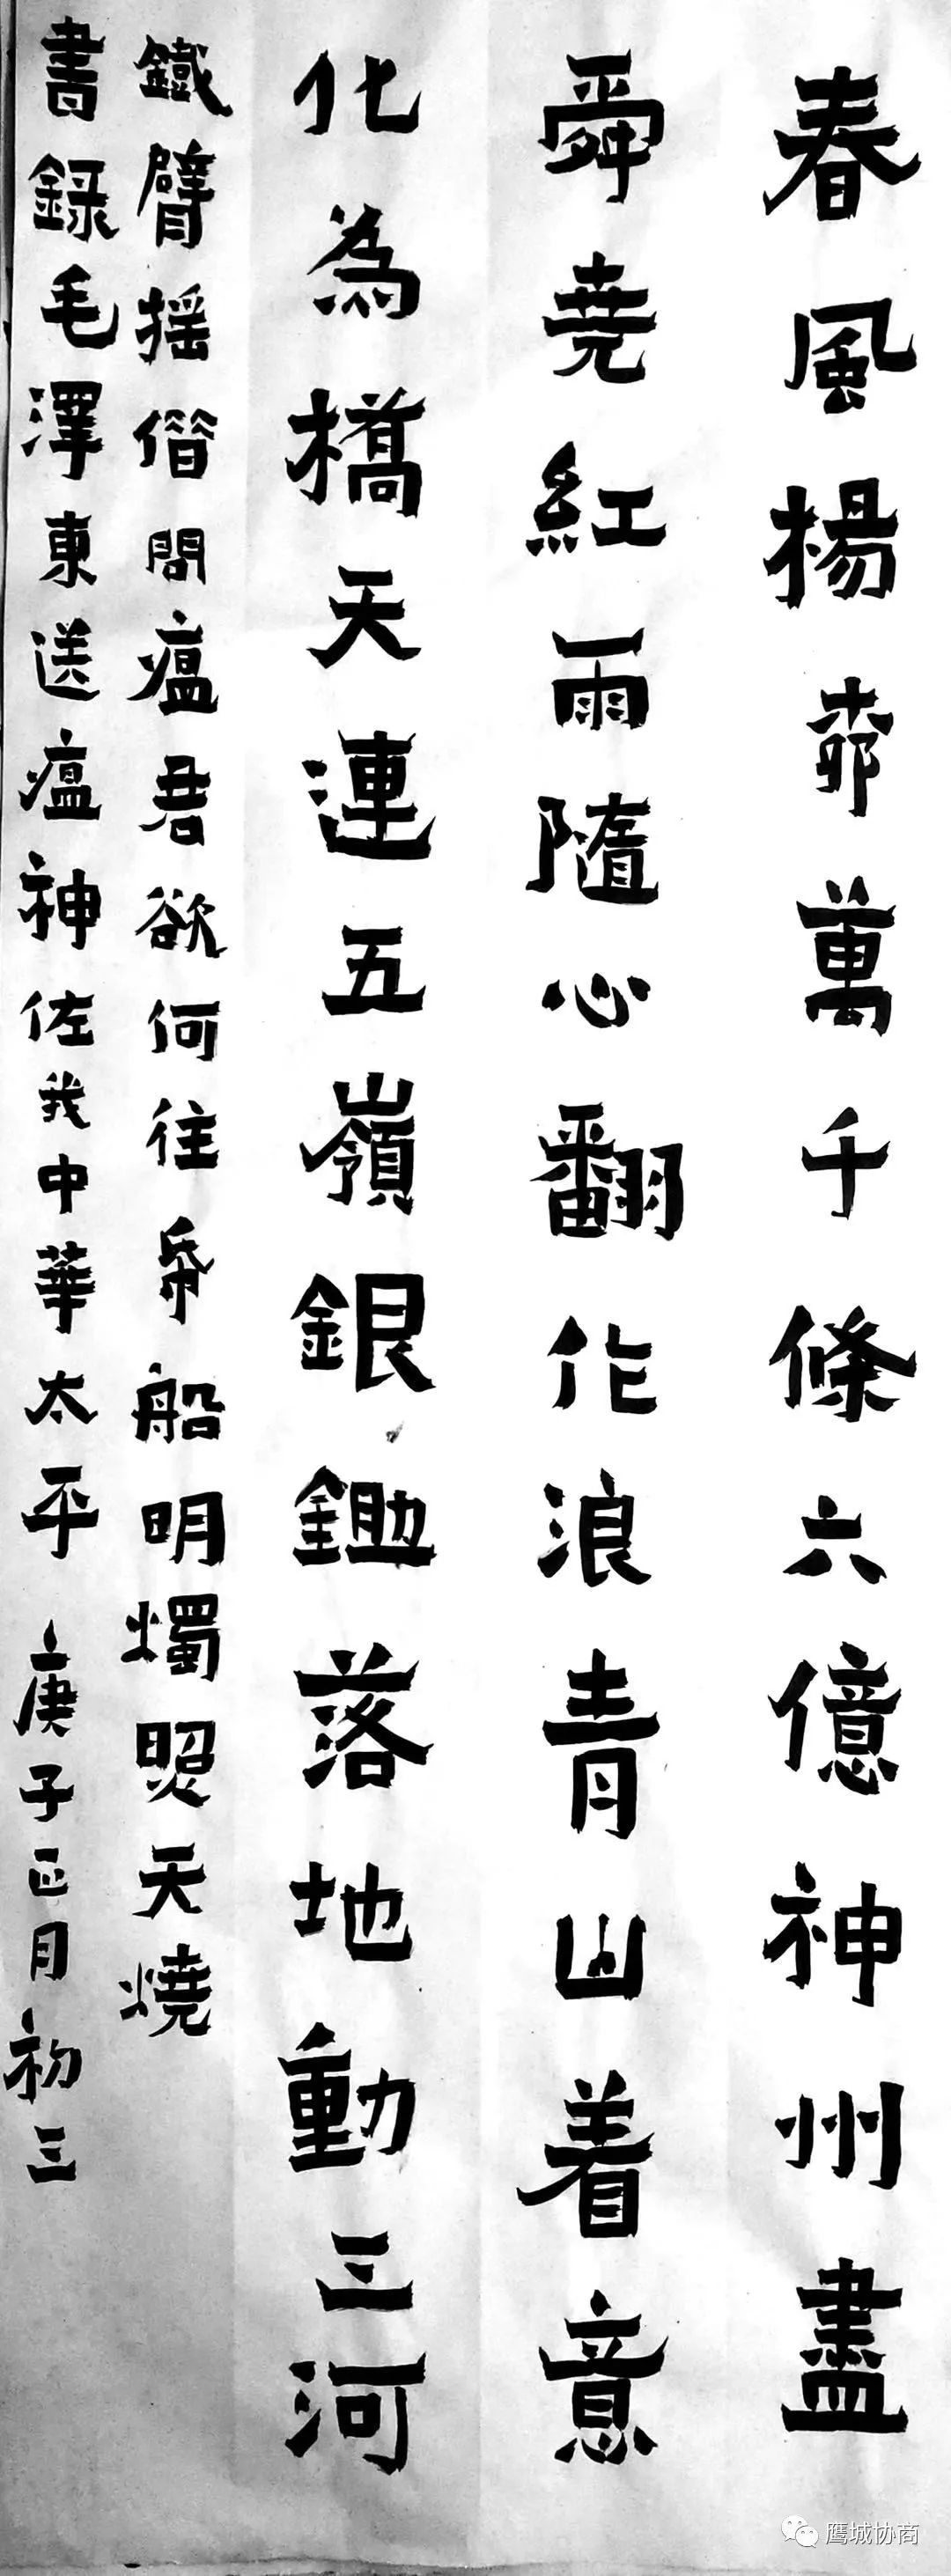 春風楊桺萬千條六億神州盡
舜堯紅雨隨心翻作浪青山着意
化為橋天連五嶺銀鋤落地動三河
鐵臂摇借問瘟君欲何往帋船明燭照天燒
書録毛澤東送瘟神佐我中華太平 庚子正月初三
鹰城协商